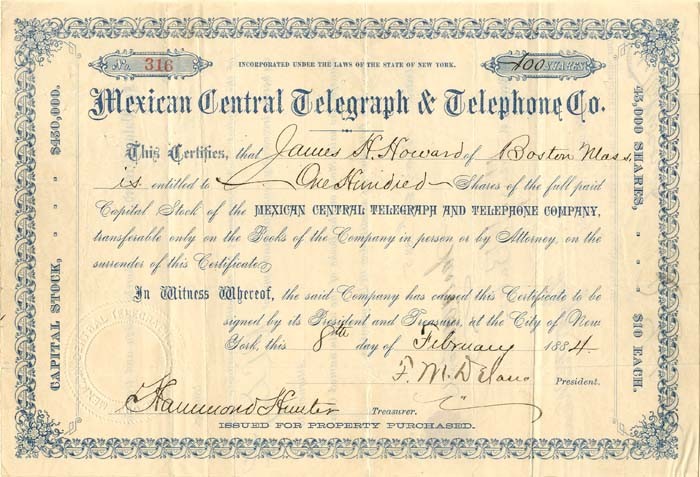 No. 316
INCORPORATED UNDER THE LAWS OF THE STATE OF NEW YORK.
100 SHARES
Mexican Central Telegraph & Telephone Co.
This Certifies, that James H. Howard of Boston Mass.
is entitled to One Hundred Shares of the full paid
Capital Stock of the MEXICAN CENTRAL TELEGRAPH AND TELEPHONE COMPANY,
transferable only on the Books of the Company in person or by Attorney, on the
surrender of this Certificate
In Witness Whereof, the said Company has caused this Certificate to be
signed by its President and Treasurer, at the City of New
York, this 8th day of February 1884.
F. M. Delano
President.
Hammond Hunter Treasurer.
ISSUED FOR PROPERTY PURCHASED.
CAPITAL STOCK, - - $450,000.
45,000 SHARES, - - $10 EACH.